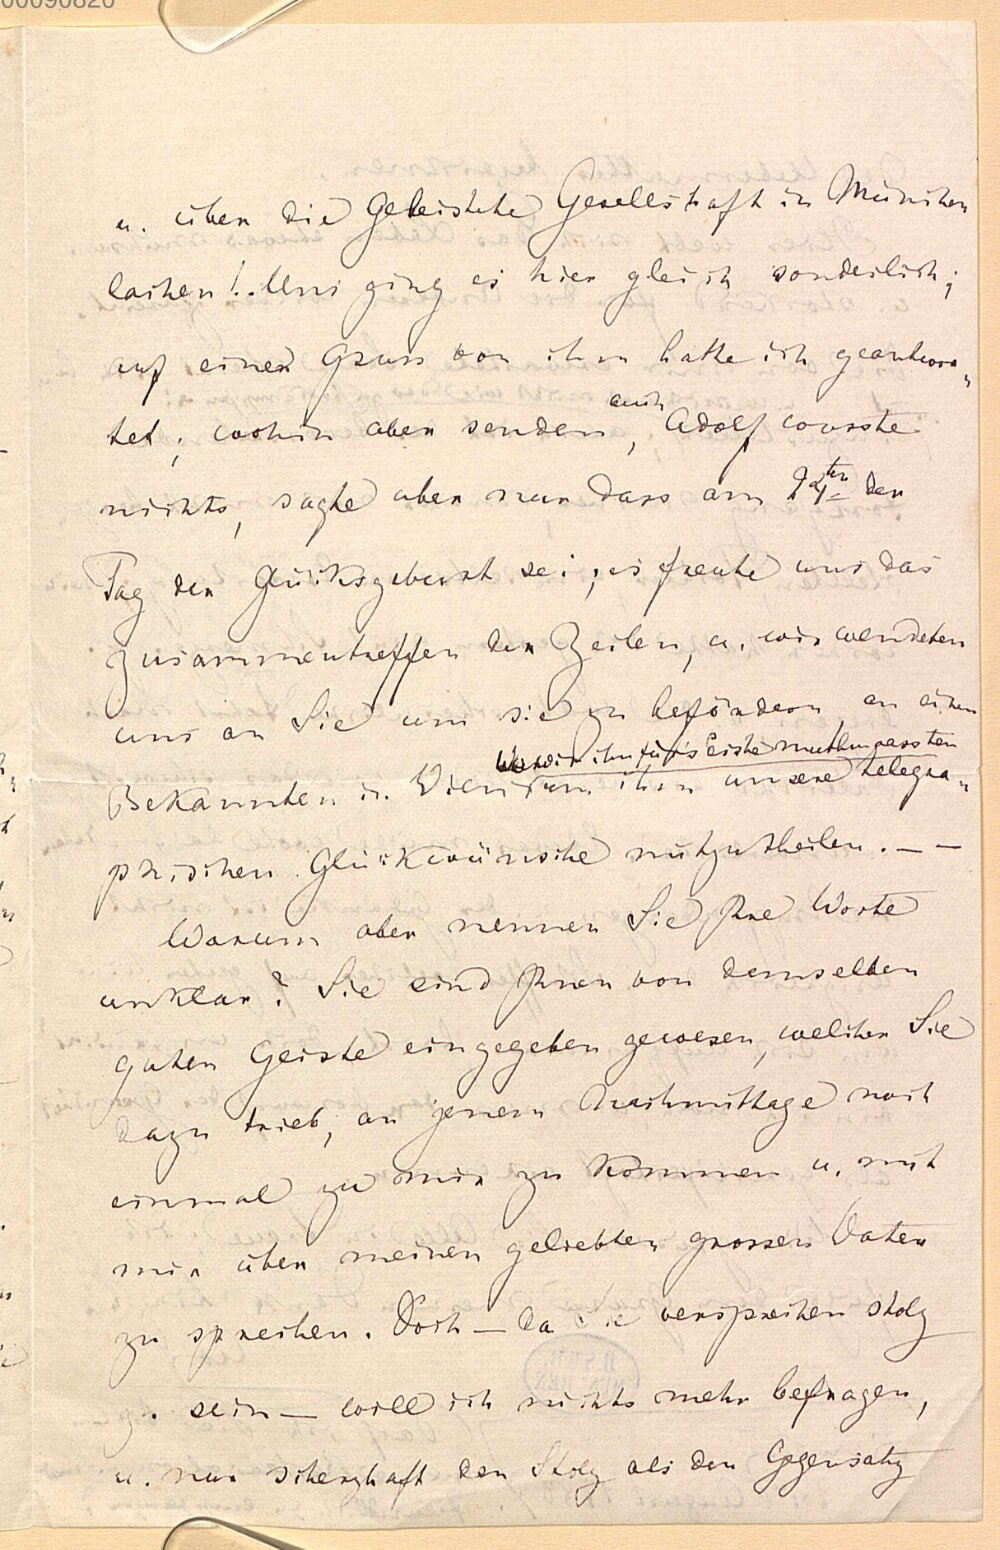 00090820
u. über die geleistete Gesellschaft in München
lachen!. Uns ging es hier gleich sonderlich;
auf einen Gruss von ihm hatte ich geantwor-
tet; wohin aber senden, auch Adolf wusste
nichts, sagte aber nur dass am 24ten der
Tag der Glücksgeburt sei; es freute uns das
Zusammentreffen der Zeilen, u. wir wendeten
uns an Sie um sie zu befördern an einen
wo wir ihn für's Erste muthmassten
Bekannten in Wien um ihm unsere telegra-
phischen Glückwünsche mitzutheilen. — —
Warum aber nennen Sie Ihre Worte
unklar? Sie sind Ihnen von demselben
guten Geiste eingegeben gewesen, welcher Sie
dazu trieb, an jenem Nachmittage noch
einmal zu mir zu kommen u. mit
mir über meinen geliebten grossen Vater
zu sprechen. Doch — da Sie versprechen stolz
z. sein — will ich nichts mehr befragen,
u. nur scherzhaft den Stolz als den Gegensatz